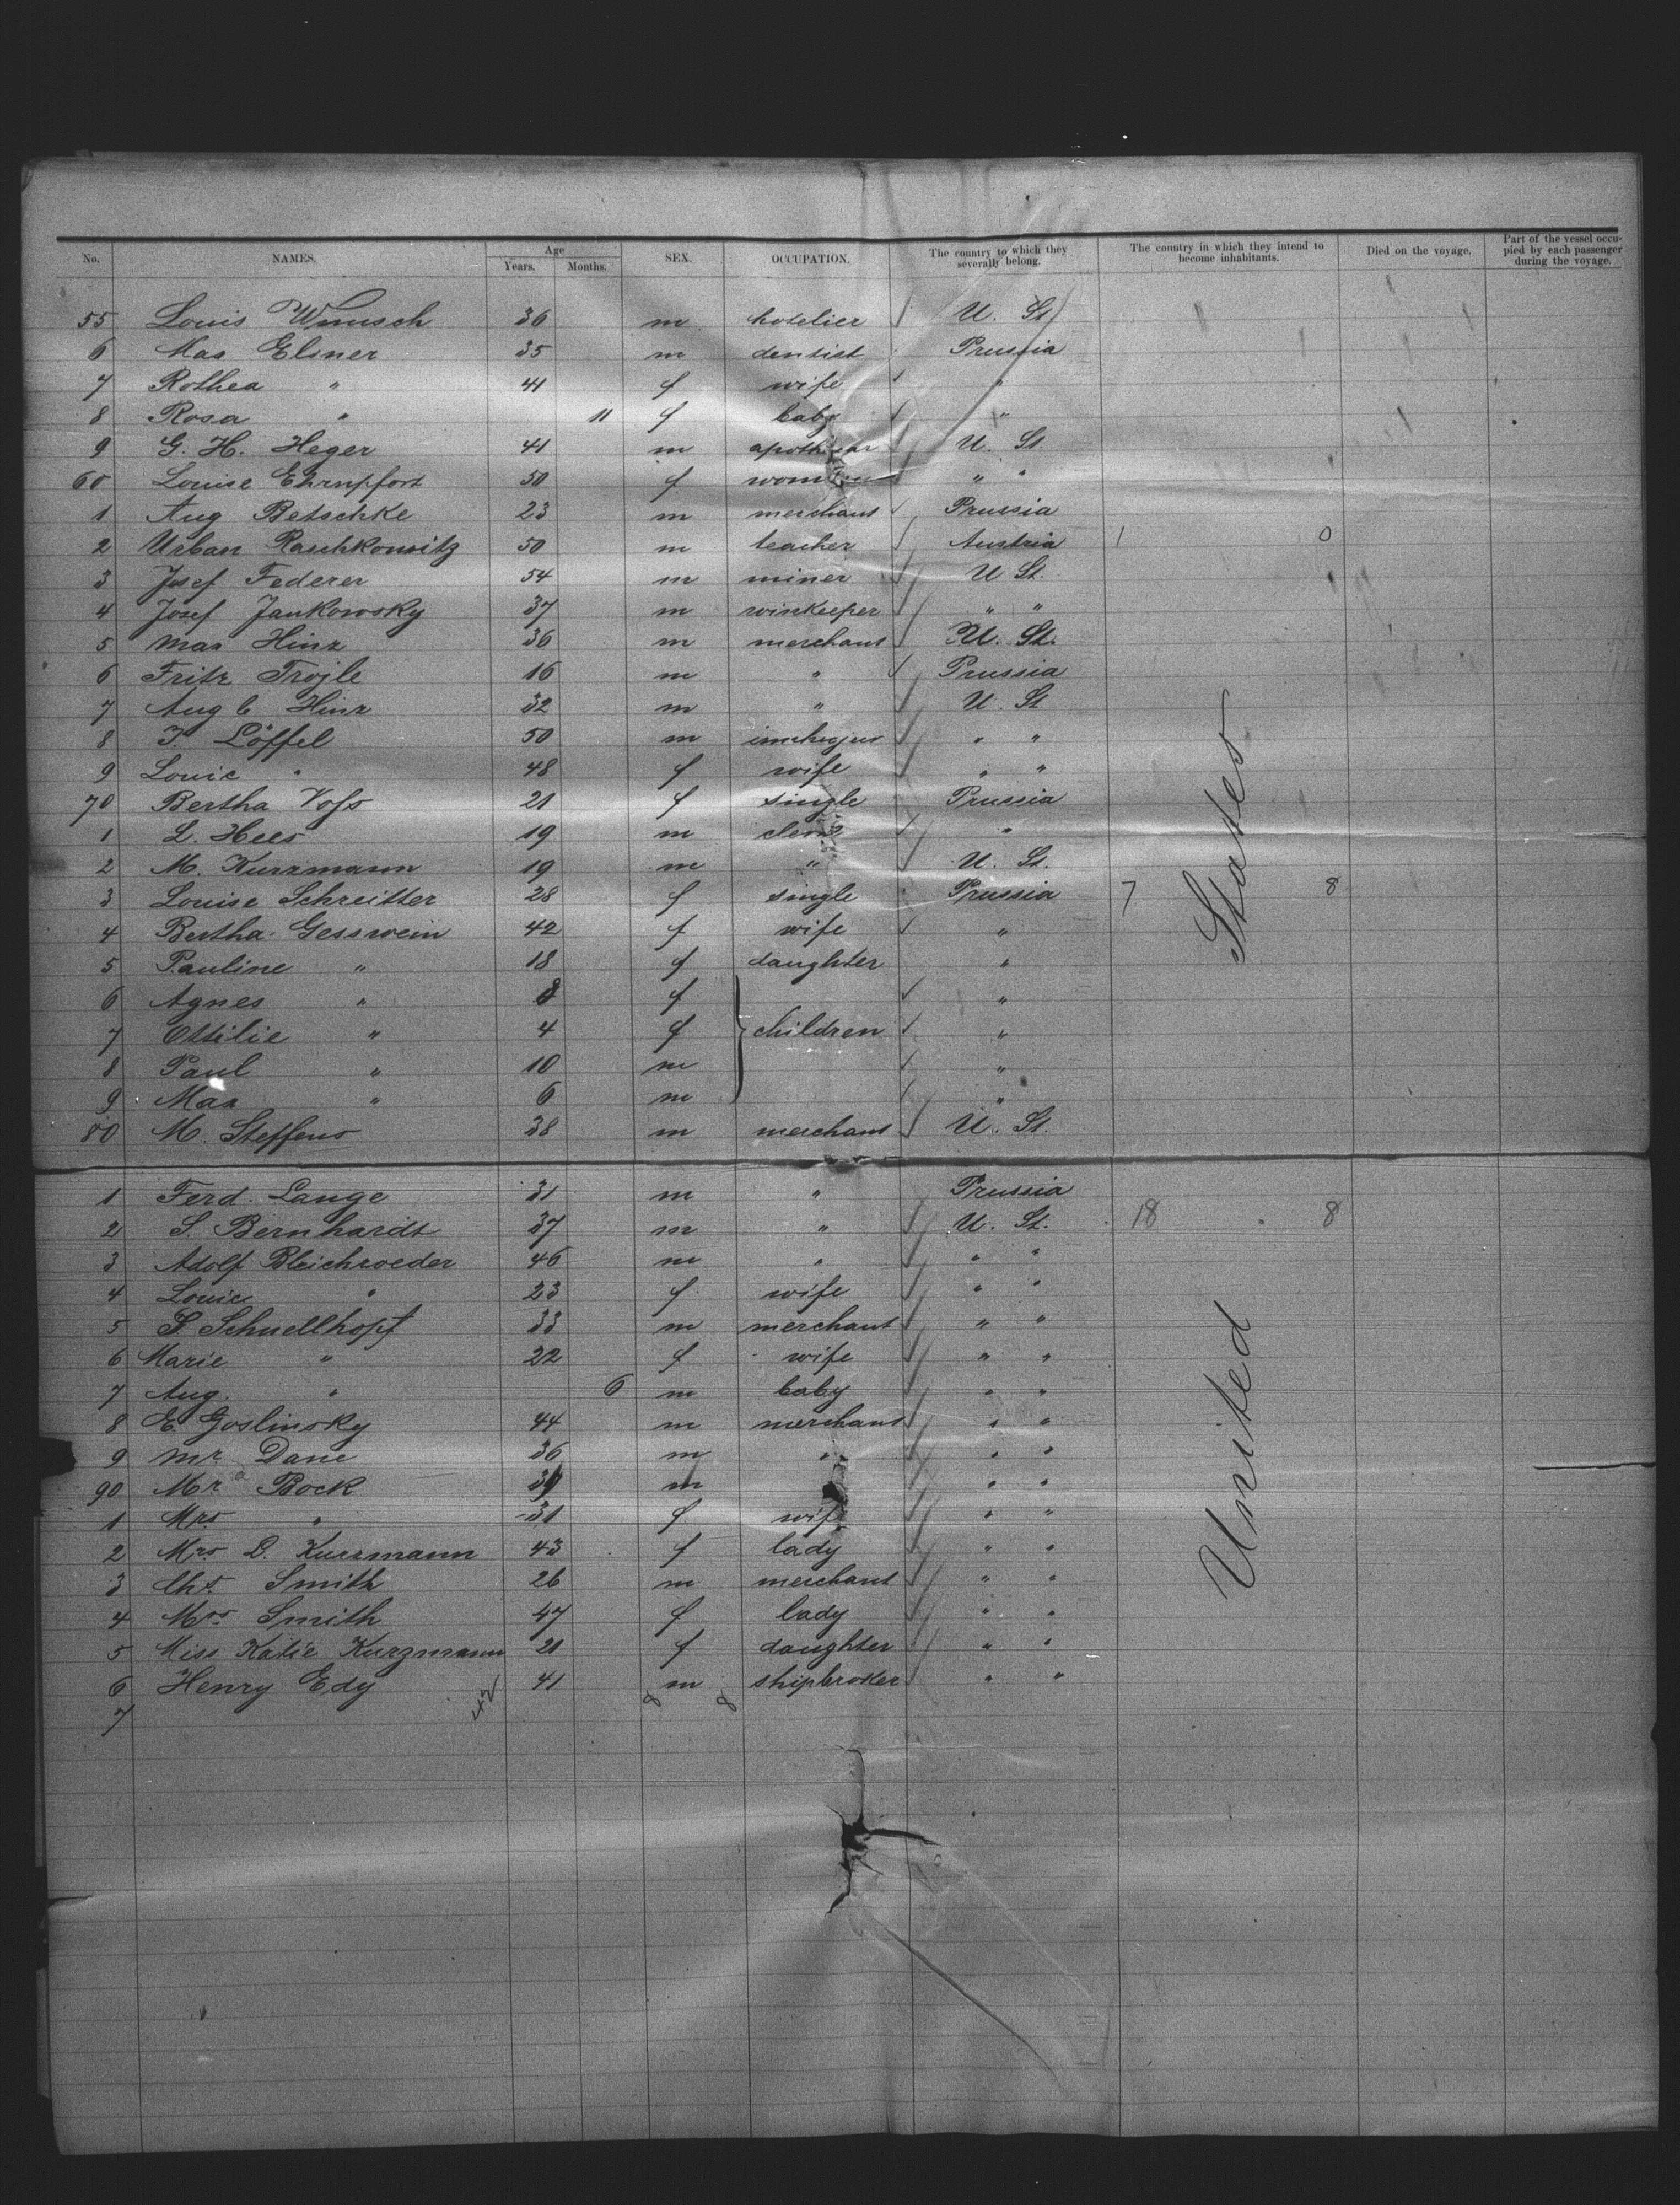 No. NAMES. Age Years. Months. SEX. OCCUPATION. The country to which they severally belong. The country in which they intend to become inhabitants. Died on the voyage. Part of the vessel occupied by each passenger during the voyage.
55 Louis Wunsch 36 m hotelier U. St
6 Max Elsner 35 m dentist Prussia
7 Rothea " 41 f wife "
8 Rosa " 11 f baby "
9 G. H. Heger 41 m U. St
60 Louise Ehrnpfort 50 f " "
1 Aug Betschke 23 m merchant Prussia
2 Urban Raschkowitz 50 m teacher Austria 1 0
3 Josef Federer 54 m miner U St.
4 Josef Jankowsky 37 m winkeeper " "
5 Max Hinz 36 m merchant U. St.
6 Fritz Trojle 16 m " Prussia
7 Aug C Hinz 32 m " U. St
8 J. Löffel 50 m " "
9 Louie " 48 f wife " "
70 Bertha Voss 21 f single Prussia
1 L. Hees 19 m "
2 M. Kurzmann 19 m " U. St.
3 Louise Schreitter 28 f single Prussia 7 8
4 Bertha Gesswein 42 f wife "
5 Pauline " 18 f daughter "
6 Agnes " 8 f "
7 Ottilie " 4 f children "
8 Paul " 10 m "
9 Max " 6 m "
80 M. Steffens 38 m merchant U. St.
1 Ferd. Lange 31 m " Prussia
2 S. Bernhardt 37 m " U. St. 18 8
3 Adolf Bleichroeder 46 m " " "
4 Louie " 23 f wife " "
5 S. Schnellhopf 33 m merchant " "
6 Marie " 22 f wife " "
7 Aug. " 6 m baby " "
8 E. Goslinsky 44 m merchant " "
9 Mr. Dane 36 m " " "
90 Mr Bock 39 m " "
1 Mrs " 31 f wife " "
2 Mrs D. Kurzmann 43 f lady " "
3 Chs. Smith 26 m merchant " "
4 Mrs Smith 47 f lady " "
5 Miss Katie Kurzmann 21 f daughter " "
6 Henry Edy 41 m shipbroker " "
7 42 8 8
United States